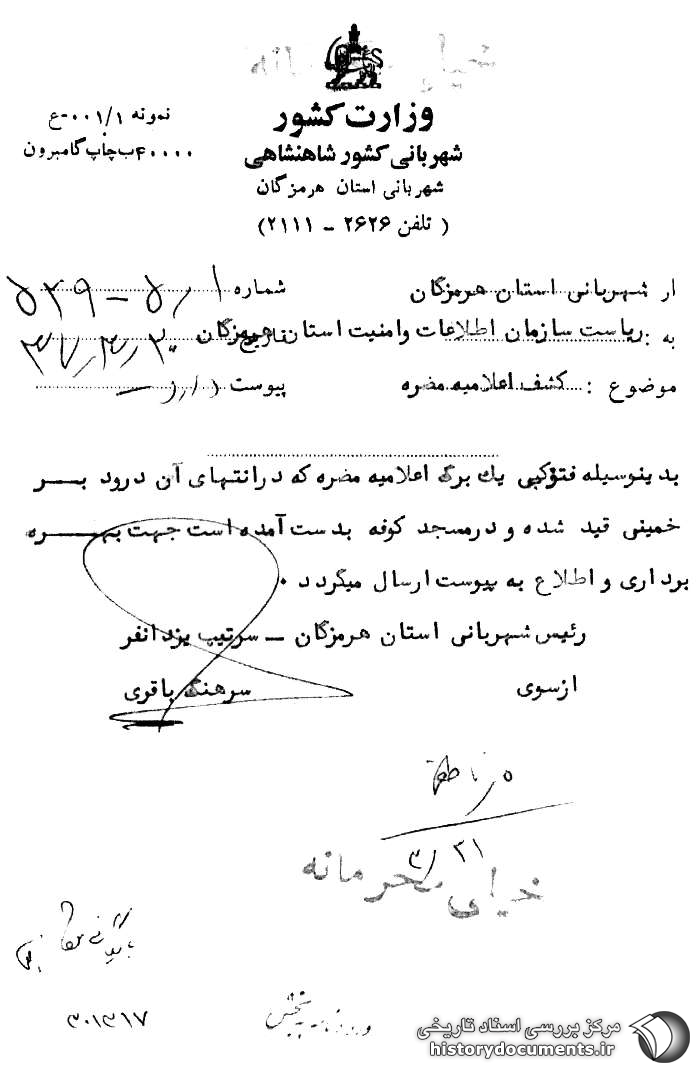 خیلی محرمانه
وزارت کشور
شهربانی کشور شاهنشاهی
شهربانی استان هرمزگان
( تلفن ۲۶۲۶ - ۲۱۱۱)
نمونه ۰۰۱/۱-ع
۴۰۰۰۰ب چاپ گامبرون
از شهربانی استان هرمزگان
شماره ۵۲۹-۵/۱
به : ریاست سازمان اطلاعات وامنیت استان هرمزگان
تاریخ
موضوع : کشف اعلامیه مضره
پیوست دارد
بدینوسیله فتوکپی یك برگ اعلامیه مضره که درانتهای آن درود بر
خمینی قید شده و درمسجد کوفه بدست آمده است جهت بهره
برداری و اطلاع به پیوست ارسال میگردد ۰
رئیس شهربانی استان هرمزگان - سرتیپ یزدانفر
ازسوی سرهنگ باقری
۳/۳۱
خیلی محرمانه
۳۰۱۳۱۷
مرکز بررسی اسناد تاریخی
historydocuments.ir